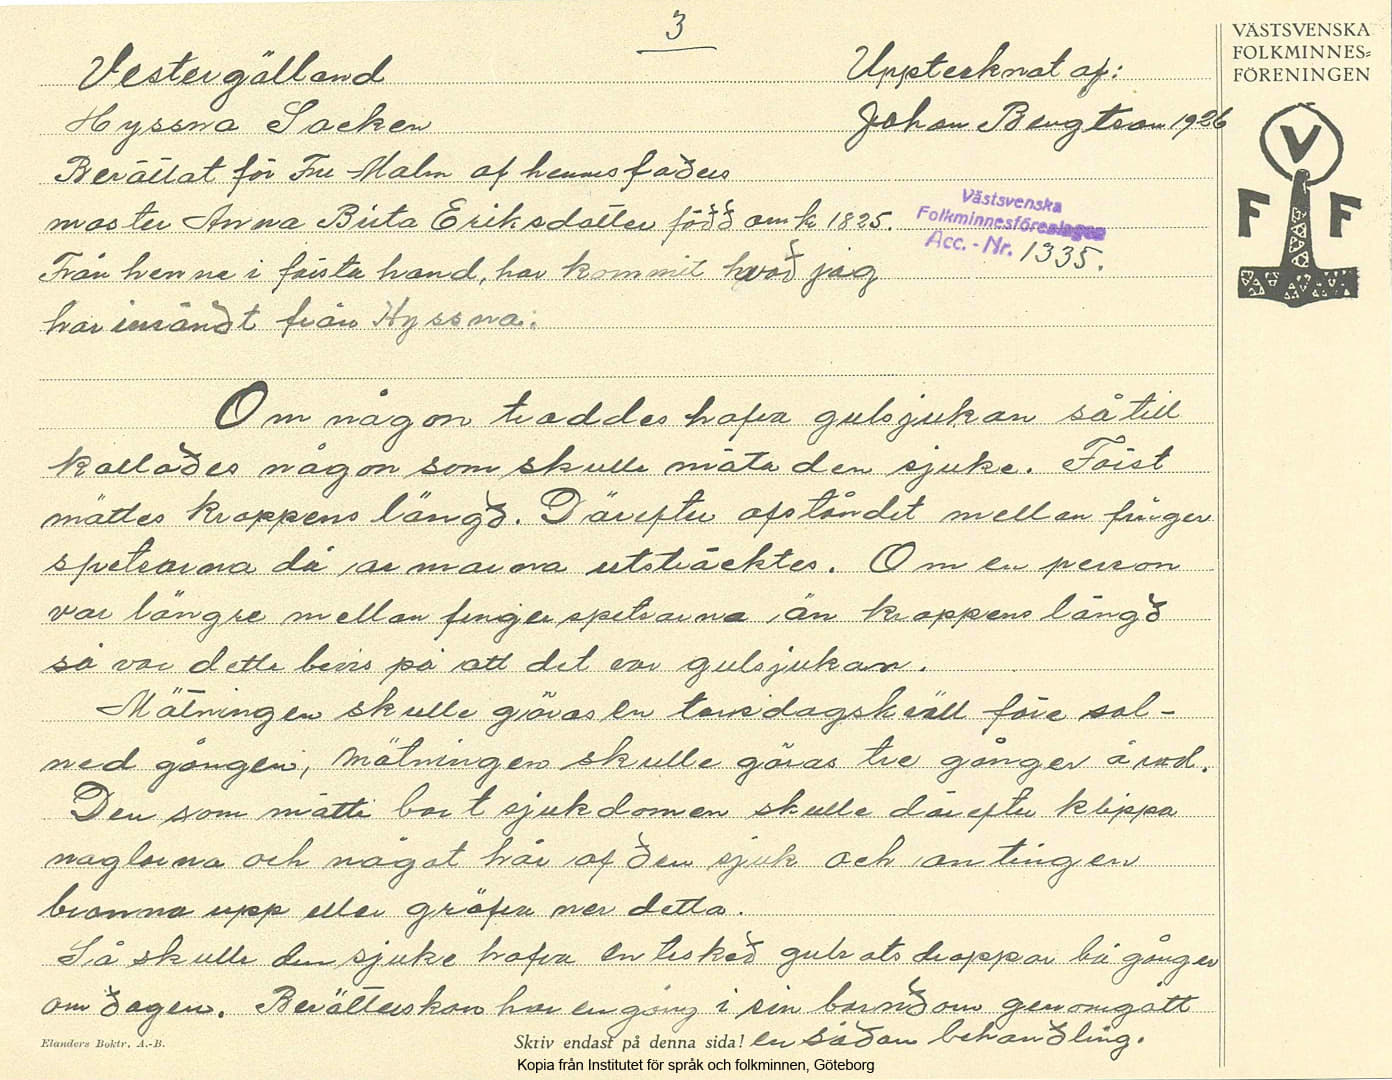 3
VÄSTSVENSKA
FOLKMINNES=
FÖRENINGEN
V
F F
Vestergötland
Uppteeknat af:
Hyssna Socken
Johan Bengtson 1926
Berättat för Fru Malm af hennes faders
moster Anna Brita Eriksdotter född omk 1825.
Västsvenska
Folkminnesföreningen
Acc. - Nr. 1335.
Från henne i första hand, har kommit hvad jag
har insändt från Hyssna.
Om någon troddes hafva gulsjukan så till
kallades någon som skulle mäta den sjuke. Först
mättes kroppens längd. Därefter afståndet mellan finger
spetsarna då armarna utsträcktes. Om en person
var längre mellan fingerspetsarna än kroppens längd
så var dette bevis på att det var gulsjukan.
Mätningen skulle göras en torsdagskväll före sol-
ned gången, mätningen skulle göras tre gånger å rad.
Den som mätte bort sjukdomen skulle därefter klippa
naglarna och något hår af den sjuk och antingen
bränna upp eller gräfva ner detta.
Så skulle den sjuke hafva en tesked gulsotsdroppar två gånger
om dagen. Berätterskan har en gång i sin barndom genomgått
en sådan behandling.
Elanders Boktr. A.-B.
Skriv endast på denna sida!
Kopia från Institutet för språk och folkminnen, Göteborg